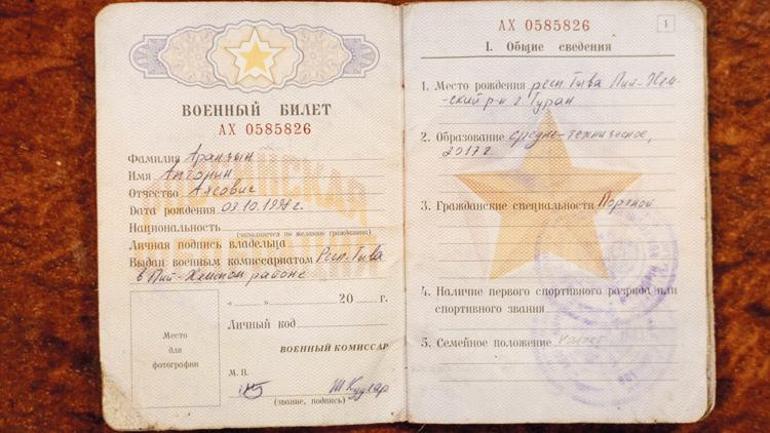 ВОЕННЫЙ БИЛЕТ
АХ 0585826
Фамилия
Имя
Отчество Аясович
Дата рождения 09.10.1998 г.
Национальность
(заполняется по желанию гражданина)
Личная подпись владельца
Выдан военным комиссариатом Респ. Тыва
в Пий-Хемском районе
„ “ 20 г.
Личный код
ВОЕННЫЙ КОМИССАР
Место
для
фотографии
М. П.
(звание, подпись)
АХ 0585826
1
I. Общие сведения
1. Место рождения респ Тыва Пий-Хем-
-ский р-н г Туран
2. Образование средне-техническое,
2017 г.
3. Гражданские специальности
4. Наличие первого спортивного разряда или
спортивного звания
5. Семейное положение